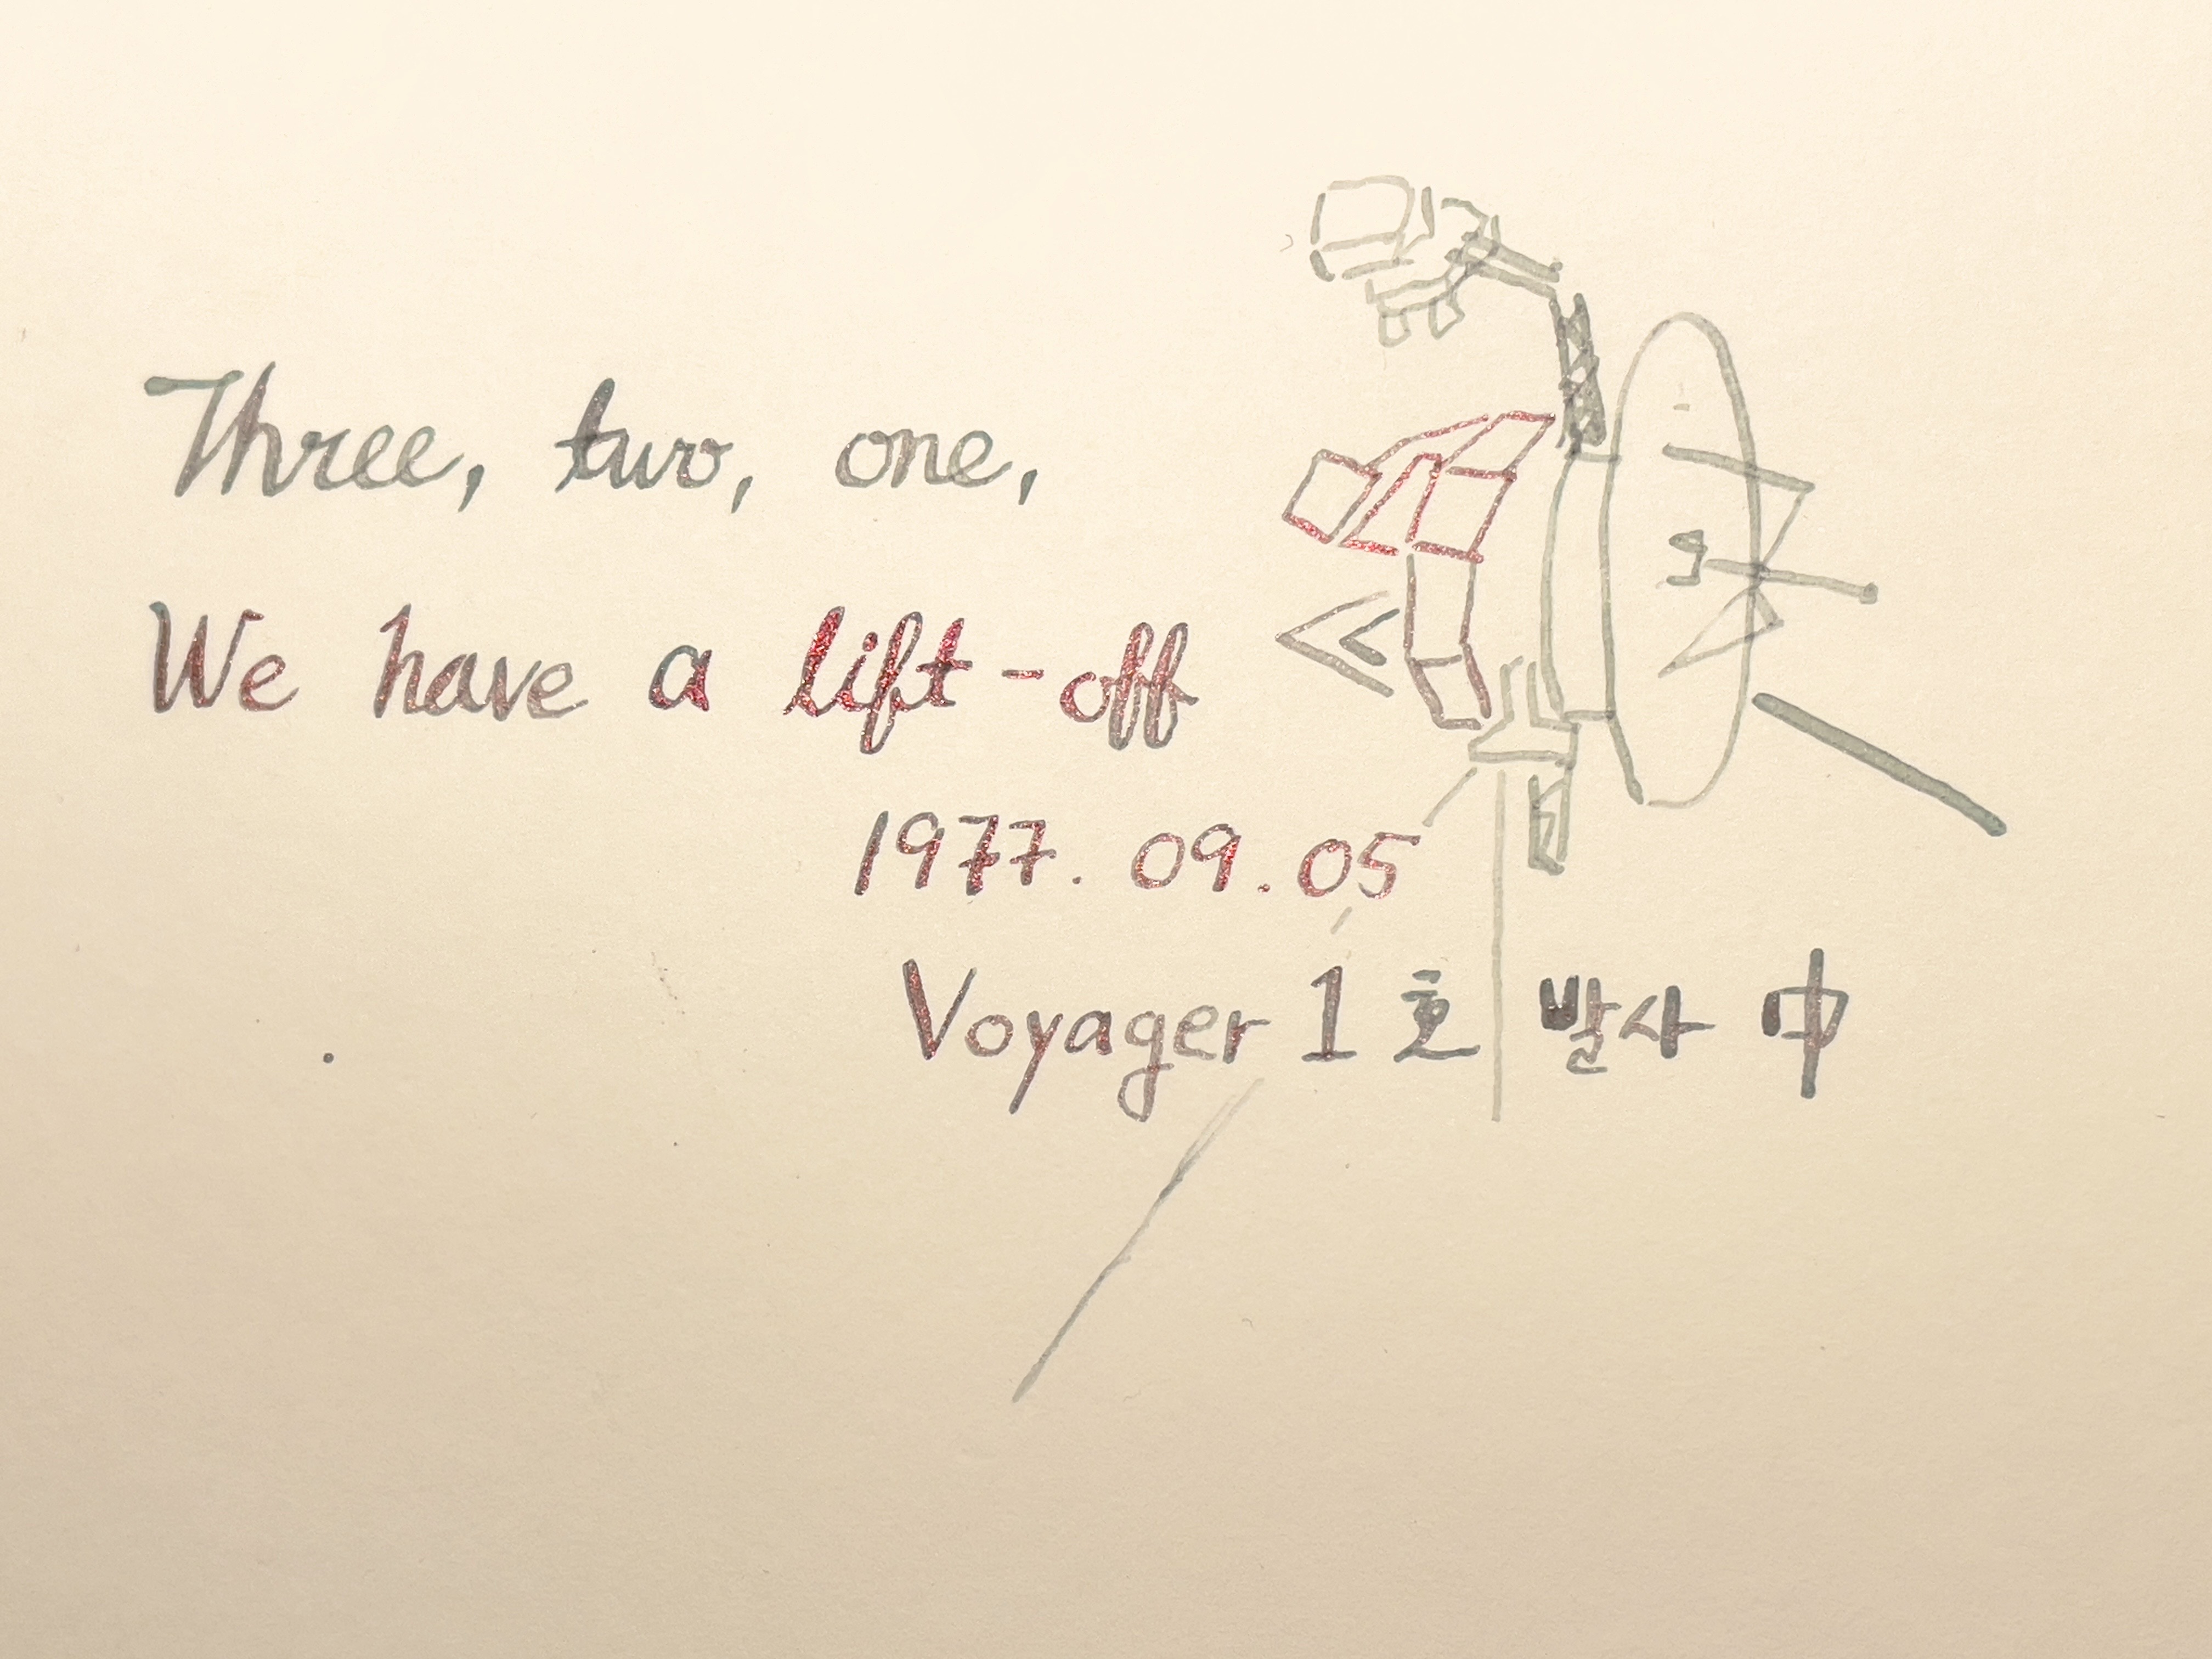 Three, two, one,
We have a lift-off
1977. 09. 05
Voyager 1호 발사 中